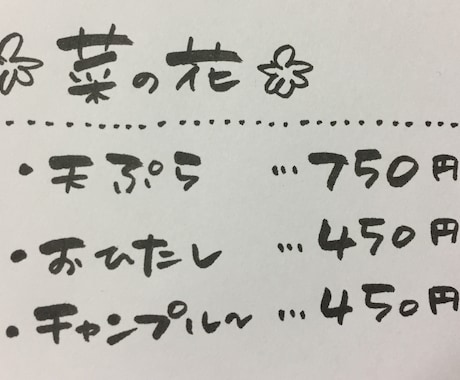 菜の花
・天ぷら …750円
・おひたし …450円
・チャンプル〜 …450円